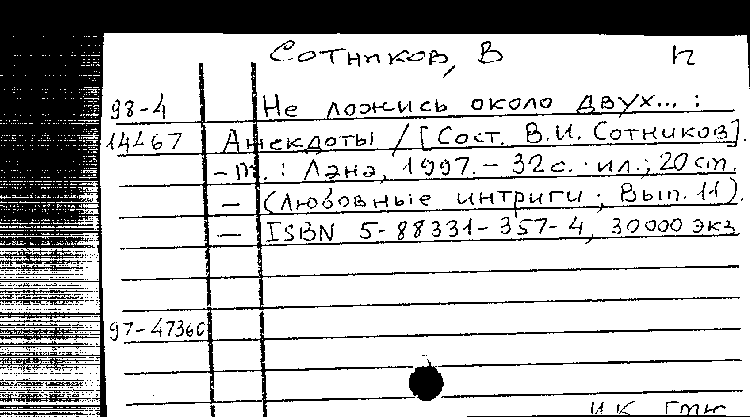 Сотников, В п
98-4 Не ложись около двух... :
Анекдоты / [Сост. В.И. Сотников].
– М. : Лана, 1997. – 32с. : ил.; 20 см.
– (Любовные интриги ; Вып. 11).
– ISBN 5-88331-357-4, 30000 экз
97-4736
И.К.